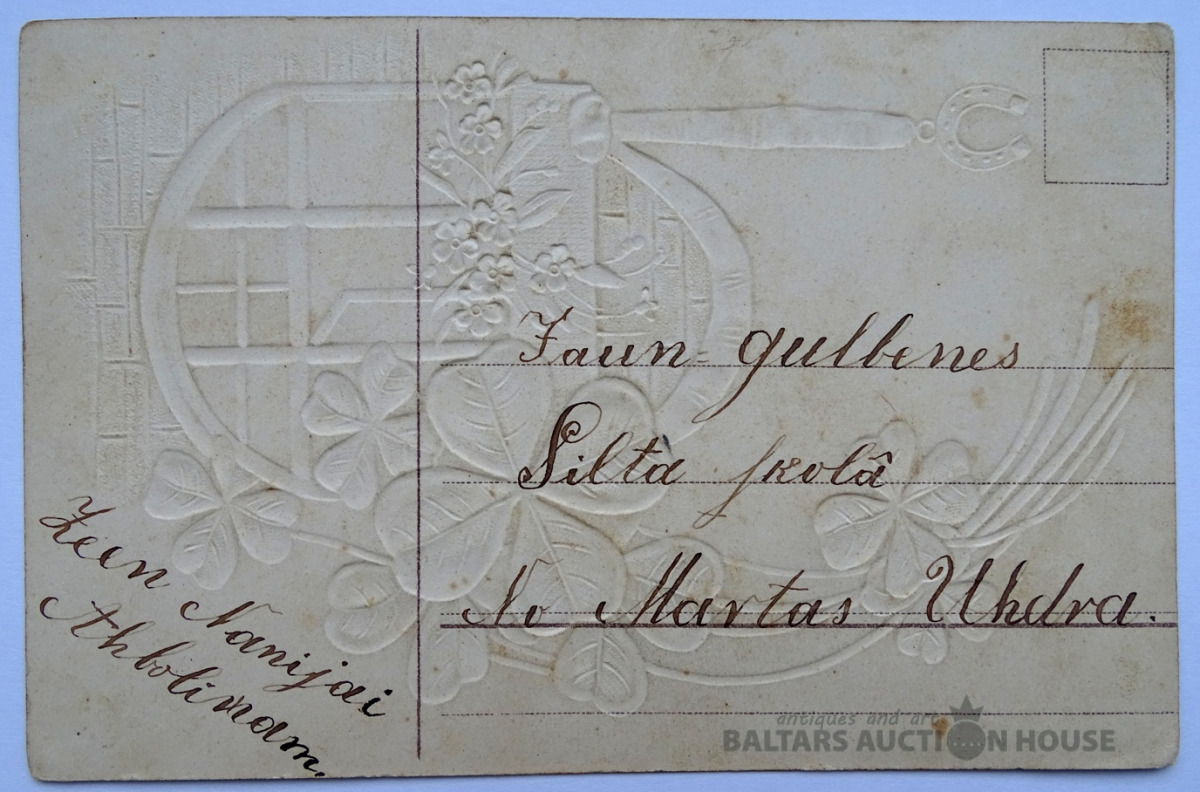 Zeen Nanijai
Ahbolinam.
Jaun-gulbenes
Silta skolâ
No Martas Uhdra.
antiques and art
BALTARS AUCTION HOUSE